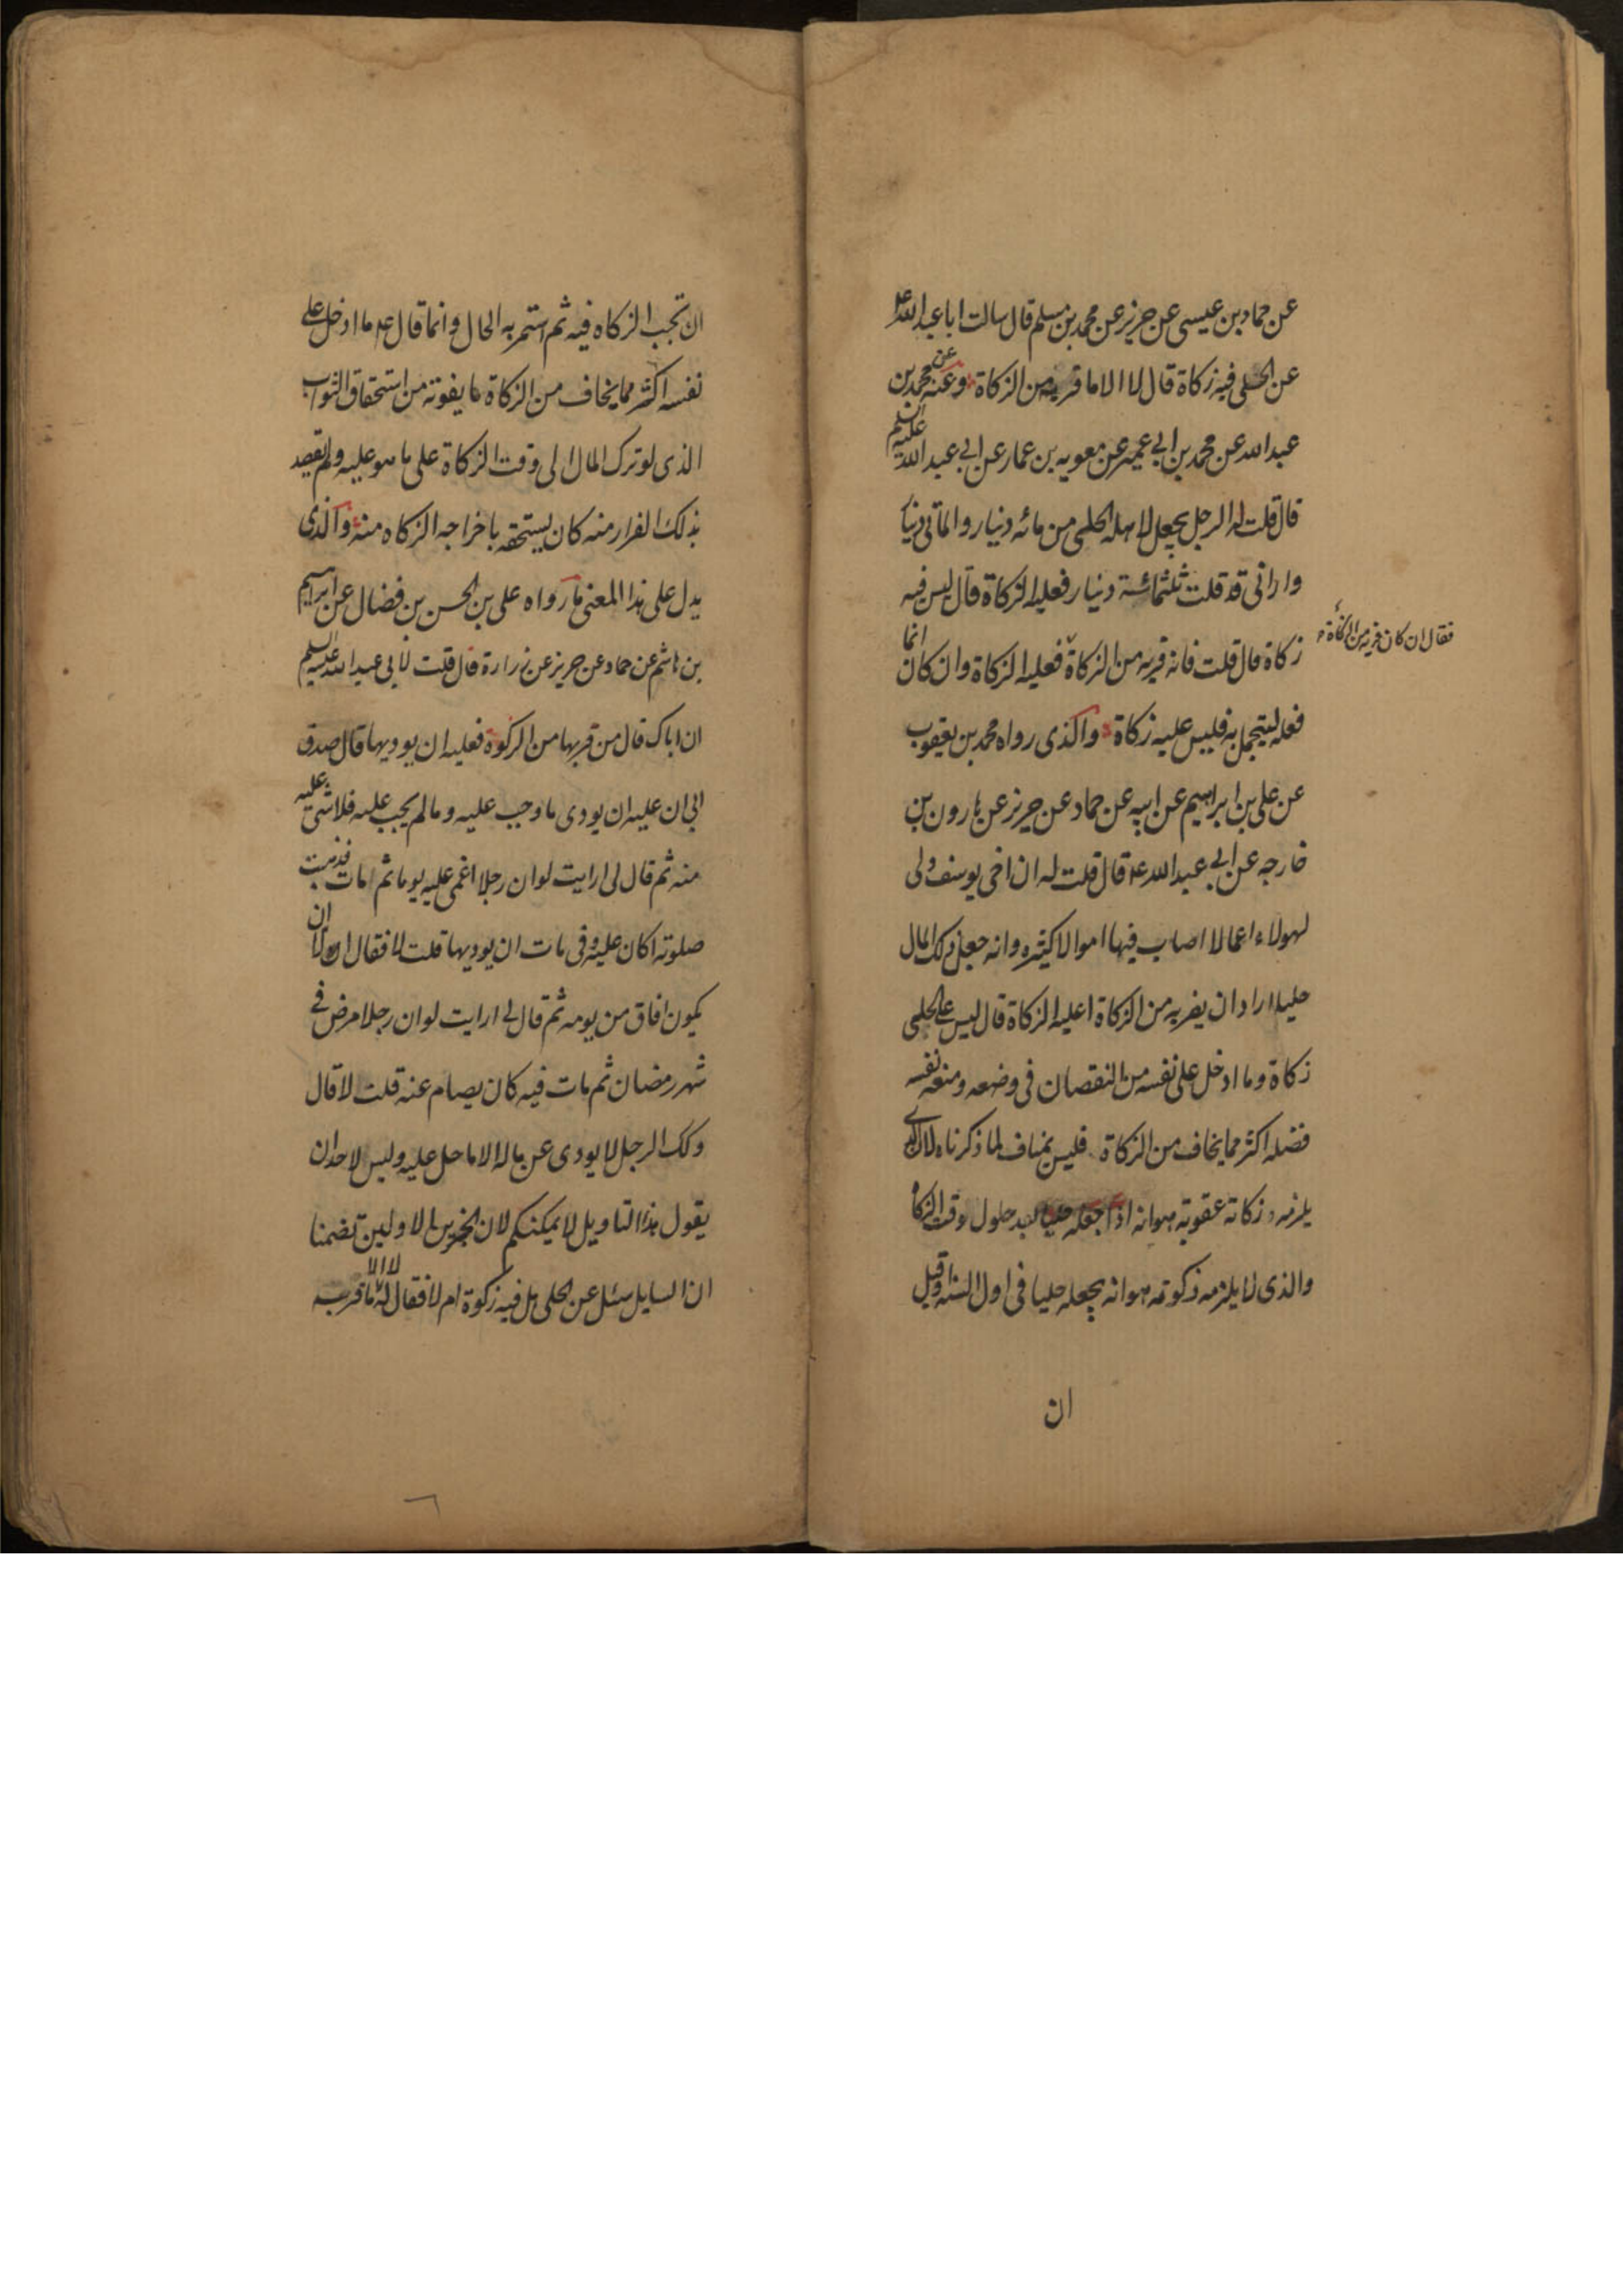 عن حماد بن عيسى عن حريز عن محمد بن مسلم قال سالت ابا عبد الله ع
عن الحلى فيه زكاة قال لا الا ما فر به من الزكاة وعنه عن محمد بن
عبد الله عن محمد بن ابي عمير عن معويه بن عمار عن ابي عبد الله عليه السلم
قال قلت له الرجل يجعل لاهله الحلى من مائه دنيار والماتى دنيا
وارانى قد قلت ثلثمائة دنيار فعليه الزكاة قال ليس فيه
زكاة قال قلت فانه فر به من الزكاة فعليه الزكاة وان كان انما
فقال ان كان فر به من الزكاة
فعله ليتجمل به فليس عليه زكاة والذى رواه محمد بن يعقوب
عن على بن ابراهيم عن ابيه عن حماد عن حريز عن هارون بن
خارجه عن ابي عبد الله ع قال قلت له ان اخى يوسف ولى
لهولاء اعمالا اصاب فيها اموالا كثيره وانه جعل ذلك المال
حليا اراد ان يفر به من الزكاة اعليه الزكاة قال ليس على الحلى
زكاة وما ادخل على نفسه من النقصان فى وضعه ومنعه نفسه
فضله اكثر مما يخاف من الزكاة فليس بمناف لما ذكرناه لان الذى
يلزمه زكاته عقوبة هو انه اذا جعله حليا بعد حلول وقت الزكاة
والذى لا يلزمه زكوته هو انه يجعله حليا فى اول السنه وقبل
ان
ان تجب الزكاه فيه ثم استمر به الحال وانما قال ع ما ادخل على
نفسه اكثر مما يخاف من الزكاة ما يفوته من استحقاق الثواب
الذى لو ترك المال الى وقت الزكاة على ما هو عليه ولم يقصد
بذلك الفرار منه كان يستحقه باخراجه الزكاه منه والذى
يدل على هذا المعنى ما رواه على بن الحسن بن فضال عن ابراهيم
بن هاشم عن حماد عن حريز عن زرارة قال قلت لابى عبد الله عليه السلم
ان اباك قال من فر بها من الزكوة فعليه ان يوديها قال صدق
ابي ان عليه ان يودى ما وجب عليه وما لم يجب عليه فلا شى عليه
منه ثم قال لى ارايت لو ان رجلا اغمى عليه يوما ثم مات فذهبت
صلوته اكان عليه وقد مات ان يوديها قلت لا فقال الا ان
يكون افاق من يومه ثم قال لى ارايت لو ان رجلا مرض فى
شهر رمضان ثم مات فيه كان يصام عنه قلت لا قال
وكك الرجل لا يودى عن ماله الا ما حل عليه وليس لاحد ان
يقول هذا التاويل لا يمكنكم لان الخبرين الاولين تضمنا
ان السايل سئل عن الحلى هل فيه زكوة ام لا فقال له لا الا ما فر به